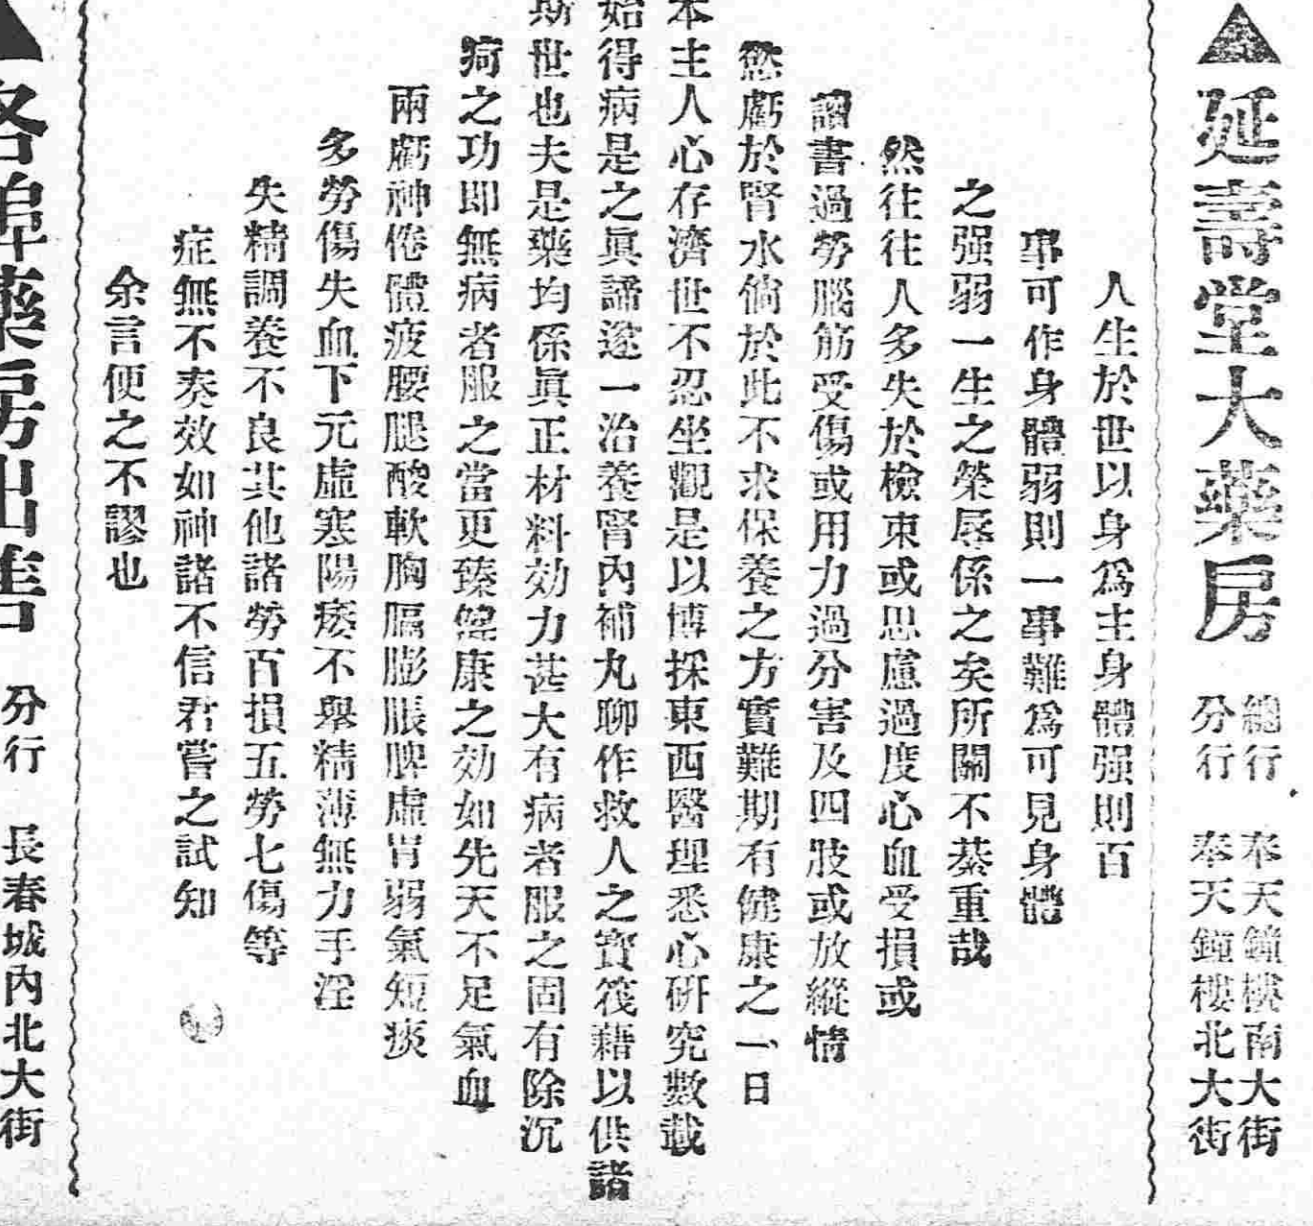 ▲延壽堂大藥房
總行 奉天鐘樓南大街
分行 奉天鐘樓北大街
人生於世以身爲主身體强則百
事可作身體弱則一事難爲可見身體
之强弱一生之榮辱係之矣所關不綦重哉
然往往人多失於檢束或思慮過度心血受損或
讀書過勞腦筋受傷或用力過分害及四肢或放縱情
慾虧於腎水倘於此不求保養之方實難期有健康之一日
本主人心存濟世不忍坐觀是以博採東西醫理悉心研究數載
始得病是之眞諦遂一治養腎內補丸聊作救人之寶筏藉以供諸
斯世也夫是藥均係眞正材料効力甚大有病者服之固有除沉
疴之功即無病者服之當更臻健康之効如先天不足氣血
兩虧神倦體疲腰腿酸軟胸膈膨脹脾虛胃弱氣短痰
多勞傷失血下元虛寒陽痿不舉精薄無力手淫
失精調養不良其他諸勞百損五勞七傷等
症無不奏效如神諸不信君嘗之試知
余言便之不謬也
▲各埠藥房出售
分行 長春城內北大街